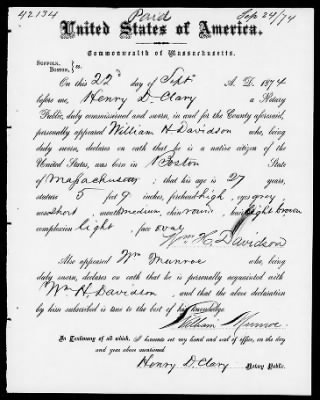 42134
Paid
Sep 24/74
United States of America.
Commonwealth of Massachusetts.
SUFFOLK,
BOSTON, } ss.
On this 22d day of Sept A. D. 1874
before me, Henry D. Clary a Notary
Public, duly commissioned and sworn, in and for the County aforesaid,
personally appeared William H Davidson who, being
duly sworn, declares on oath that he is a native citizen of the
United States, was born in Boston State
of Massachusetts ; that his age is 27 years,
stature 5 feet 9 inches, forehead high, eyes grey
nose short mouth medium, chin round, hair light brown
complexion light, face oval
Wm. H. Davidson
Also appeared Wm Munroe who, being
duly sworn, declares on oath that he is personally acquainted with
Wm H. Davidson, and that the above declaration
by him subscribed is true to the best of his knowledge
William Munroe.
In Testimony of all which, I hereunto set my hand and seal of office, on the day
and year above mentioned
Henry D. Clary Notary Public.